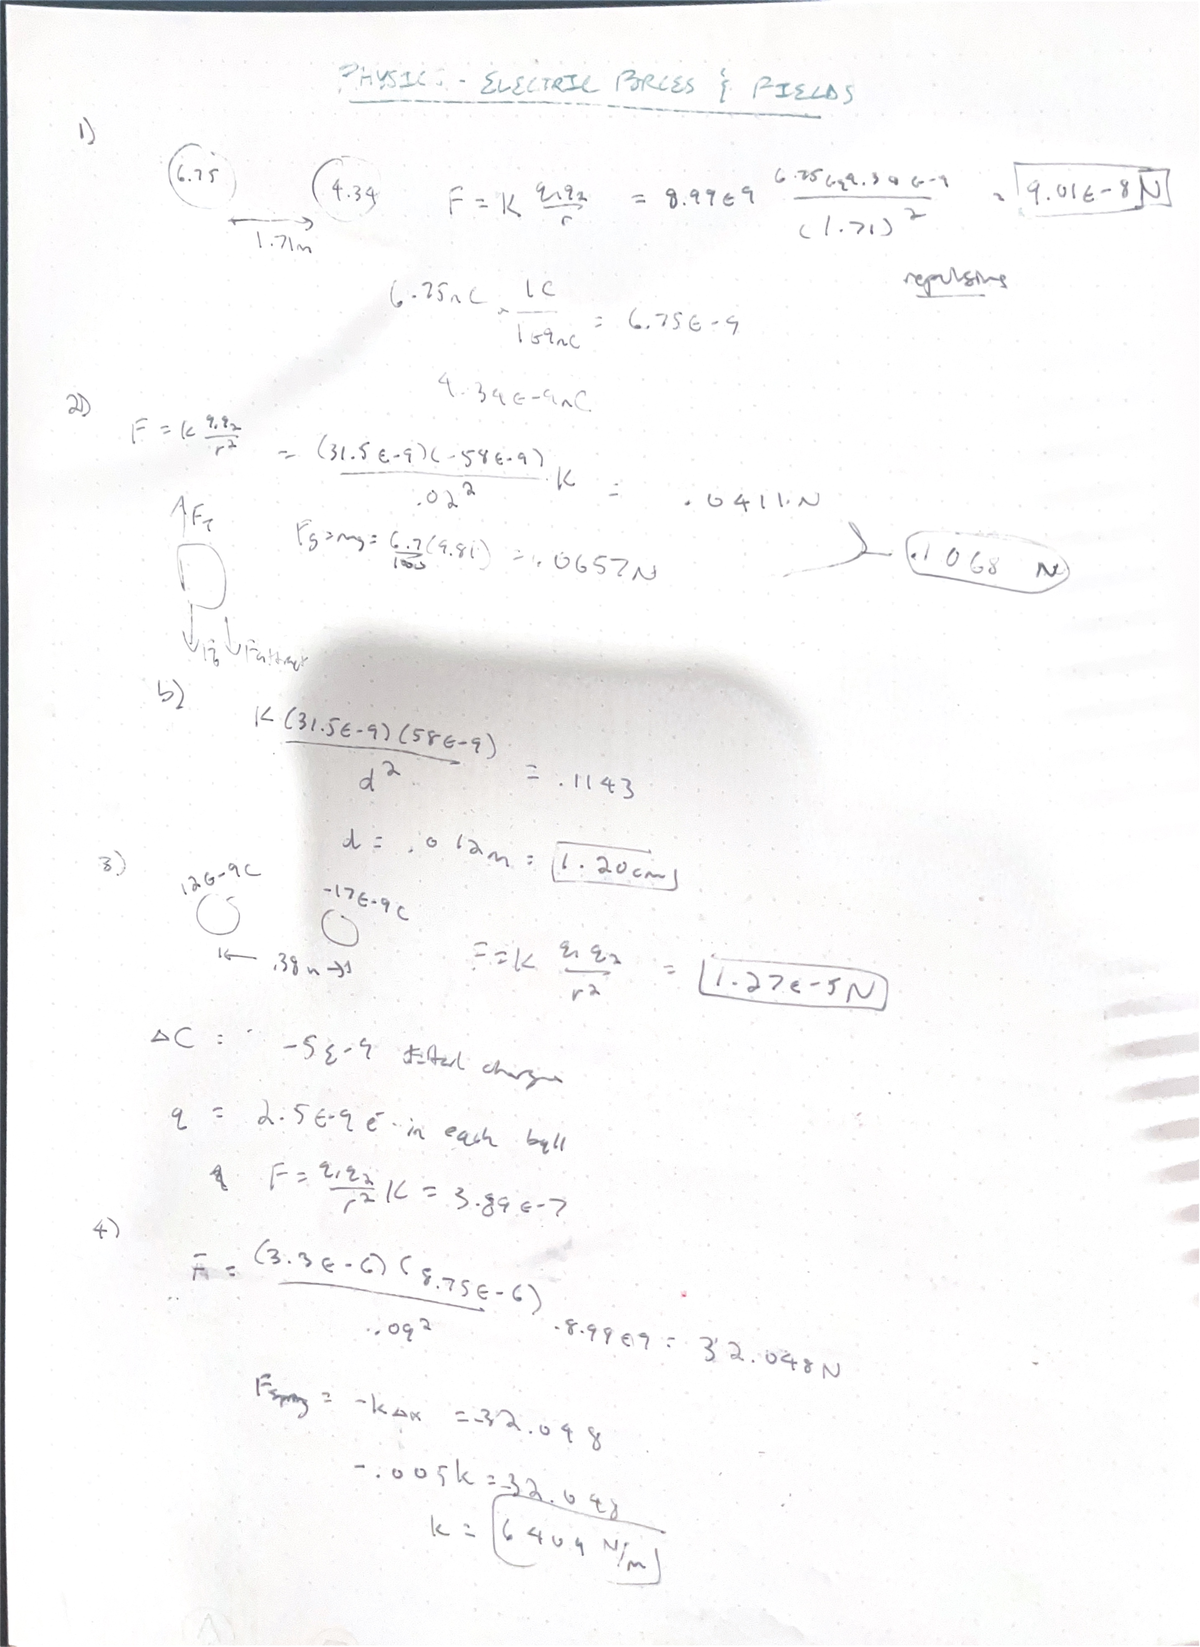 PHYSICS - ELECTRIC FORCES & FIELDS
1)
6.75 4.34 F = K q1q2/r = 8.99E9 6.75E-9 4.34E-9/(1.71)² = 9.01E-8 N
1.71m
repulsing
6.75nC · 1C/1E9nC = 6.75E-9
4.34E-9nC
2)
F = K q1q2/r² = (31.5E-9)(-58E-9)/.02² K = .0411N
FT
Fg = mg = 6.7/1000 (9.81) = .0657N .1068 N
Fg Fattract
b)
K(31.5E-9)(58E-9)/d² = .1143
d = .012m = 1.20cm
3)
12E-9C -17E-9C
.38m
F = K q1q2/r² = 1.27E-5N
ΔC = -5E-9 total charge
q = 2.5E-9 e⁻ in each ball
F = q1q2/r² K = 3.89E-7
4)
F = (3.3E-6)(8.75E-6)/.09² · 8.99E9 = 32.048N
Fspring = -kΔx = -32.048
-.005k = -32.048
k = 6409 N/m